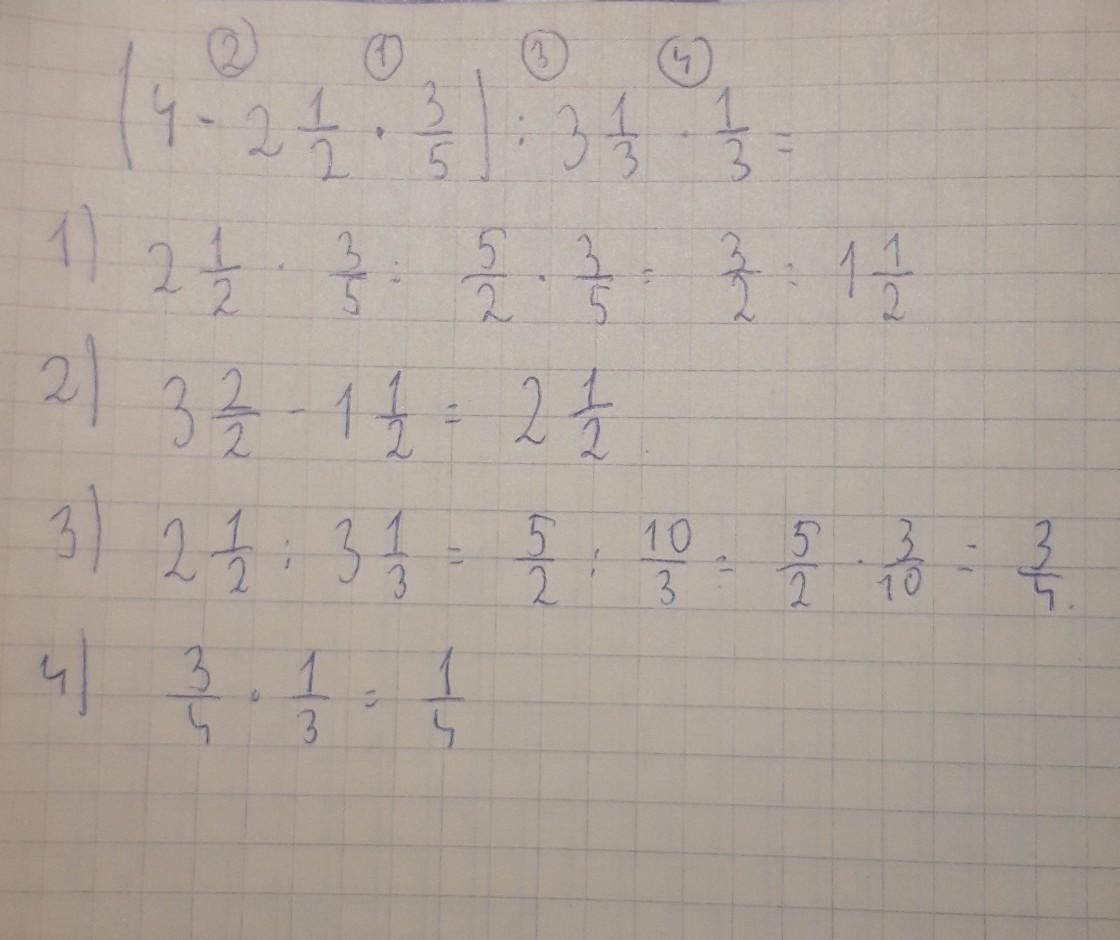 ② ① ③ ④
(4 - 2 1/2 · 3/5) : 3 1/3 · 1/3 =
1) 2 1/2 · 3/5 = 5/2 · 3/5 = 3/2 = 1 1/2
2) 3 2/2 - 1 1/2 = 2 1/2
3) 2 1/2 : 3 1/3 = 5/2 : 10/3 = 5/2 · 3/10 = 3/4.
4) 3/4 · 1/3 = 1/4